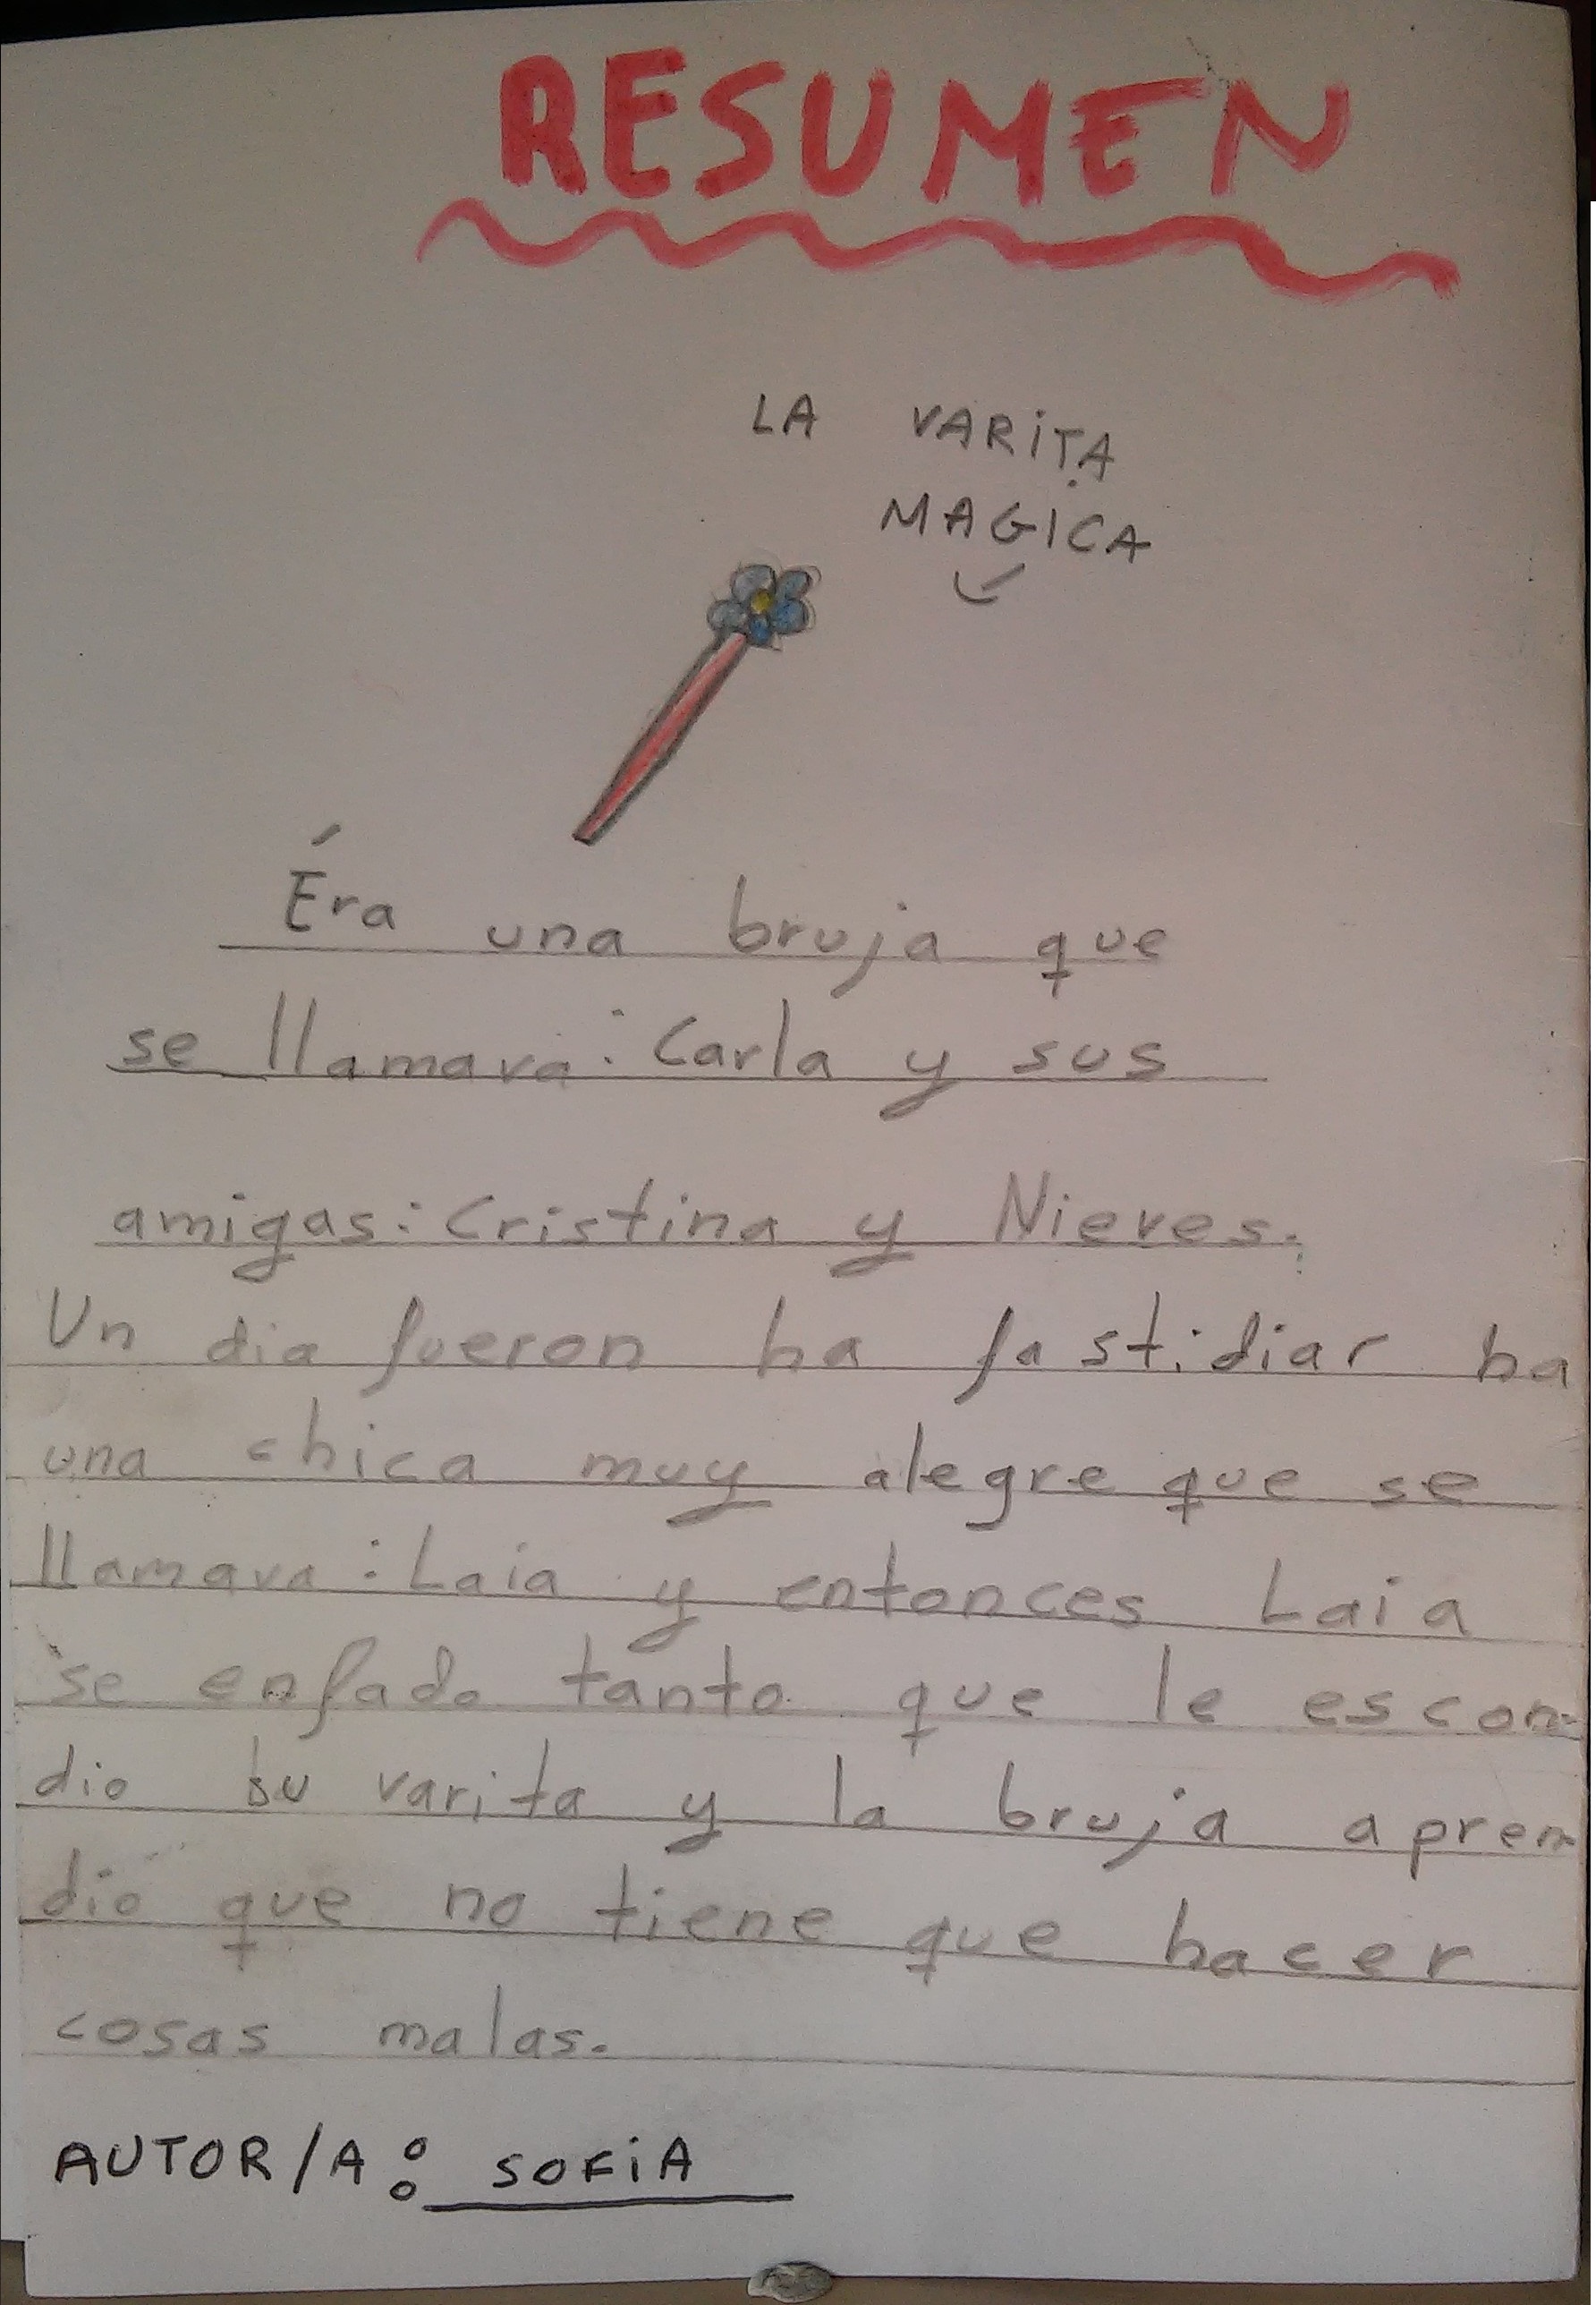 RESUMEN
LA VARiTA
MAGiCA
Éra una bruja que
se llamava: Carla y sus
amigas: Cristina y Nieves.
Un dia fueron ha fastidiar ha
una chica muy alegre que se
llamava: Laia y entonces Laia
se enfado tanto que le escon-
dio su varita y la bruja apren-
dio que no tiene que hacer
cosas malas.
AUTOR/A: SOFiA